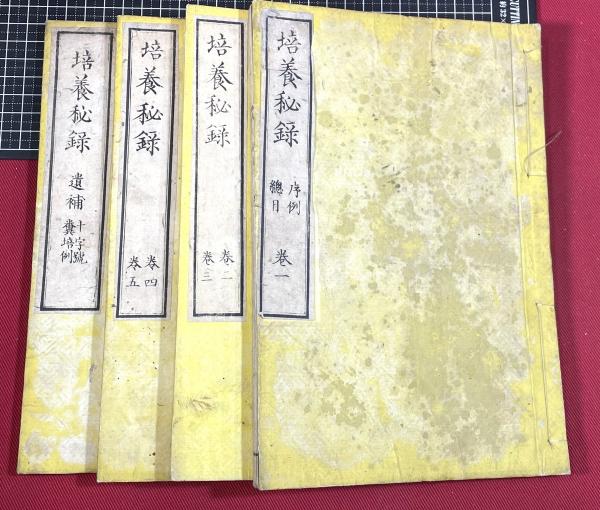 培養秘録
序例
總目
卷一
培養秘録
卷二
卷三
培養秘録
卷四
卷五
培養秘録
遺補
十字號
糞培例